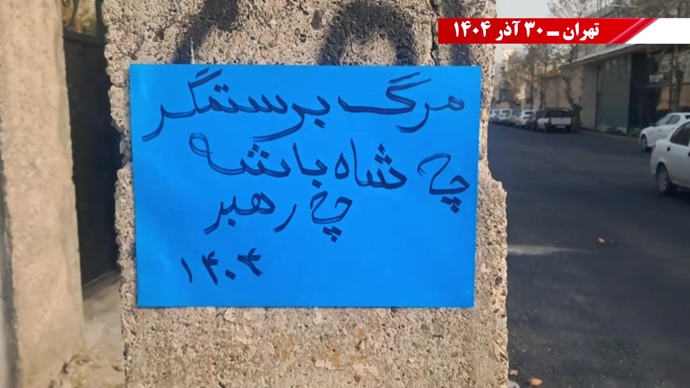 تهران - ۳۰ آذر ۱۴۰۴
مرگ بر ستمگر
چه شاه باشه
چه رهبر
۱۴۰۴